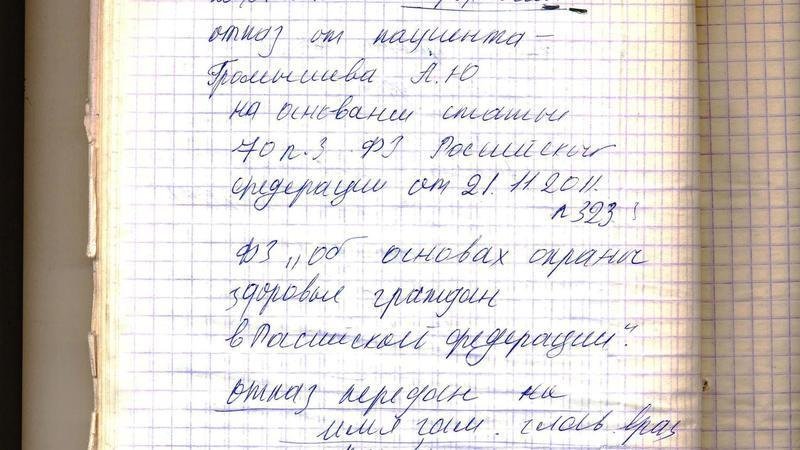 отказ от пациента –
Громышева А.Ю
на основании статьи
70 п.3 ФЗ Российской
федерации от 21.11.2011.
п 323
ФЗ „Об основах охраны
здоровья граждан
в Российской федерации".
отказ передан на
имя зам. глав. врач